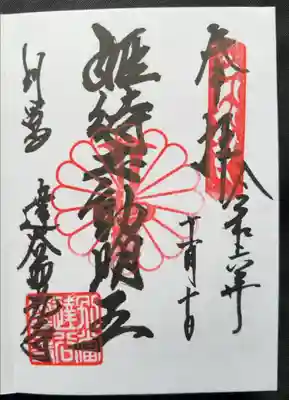 奉拝
令和六年
十一月十日
姫待不動明王
別當
達谷西光寺